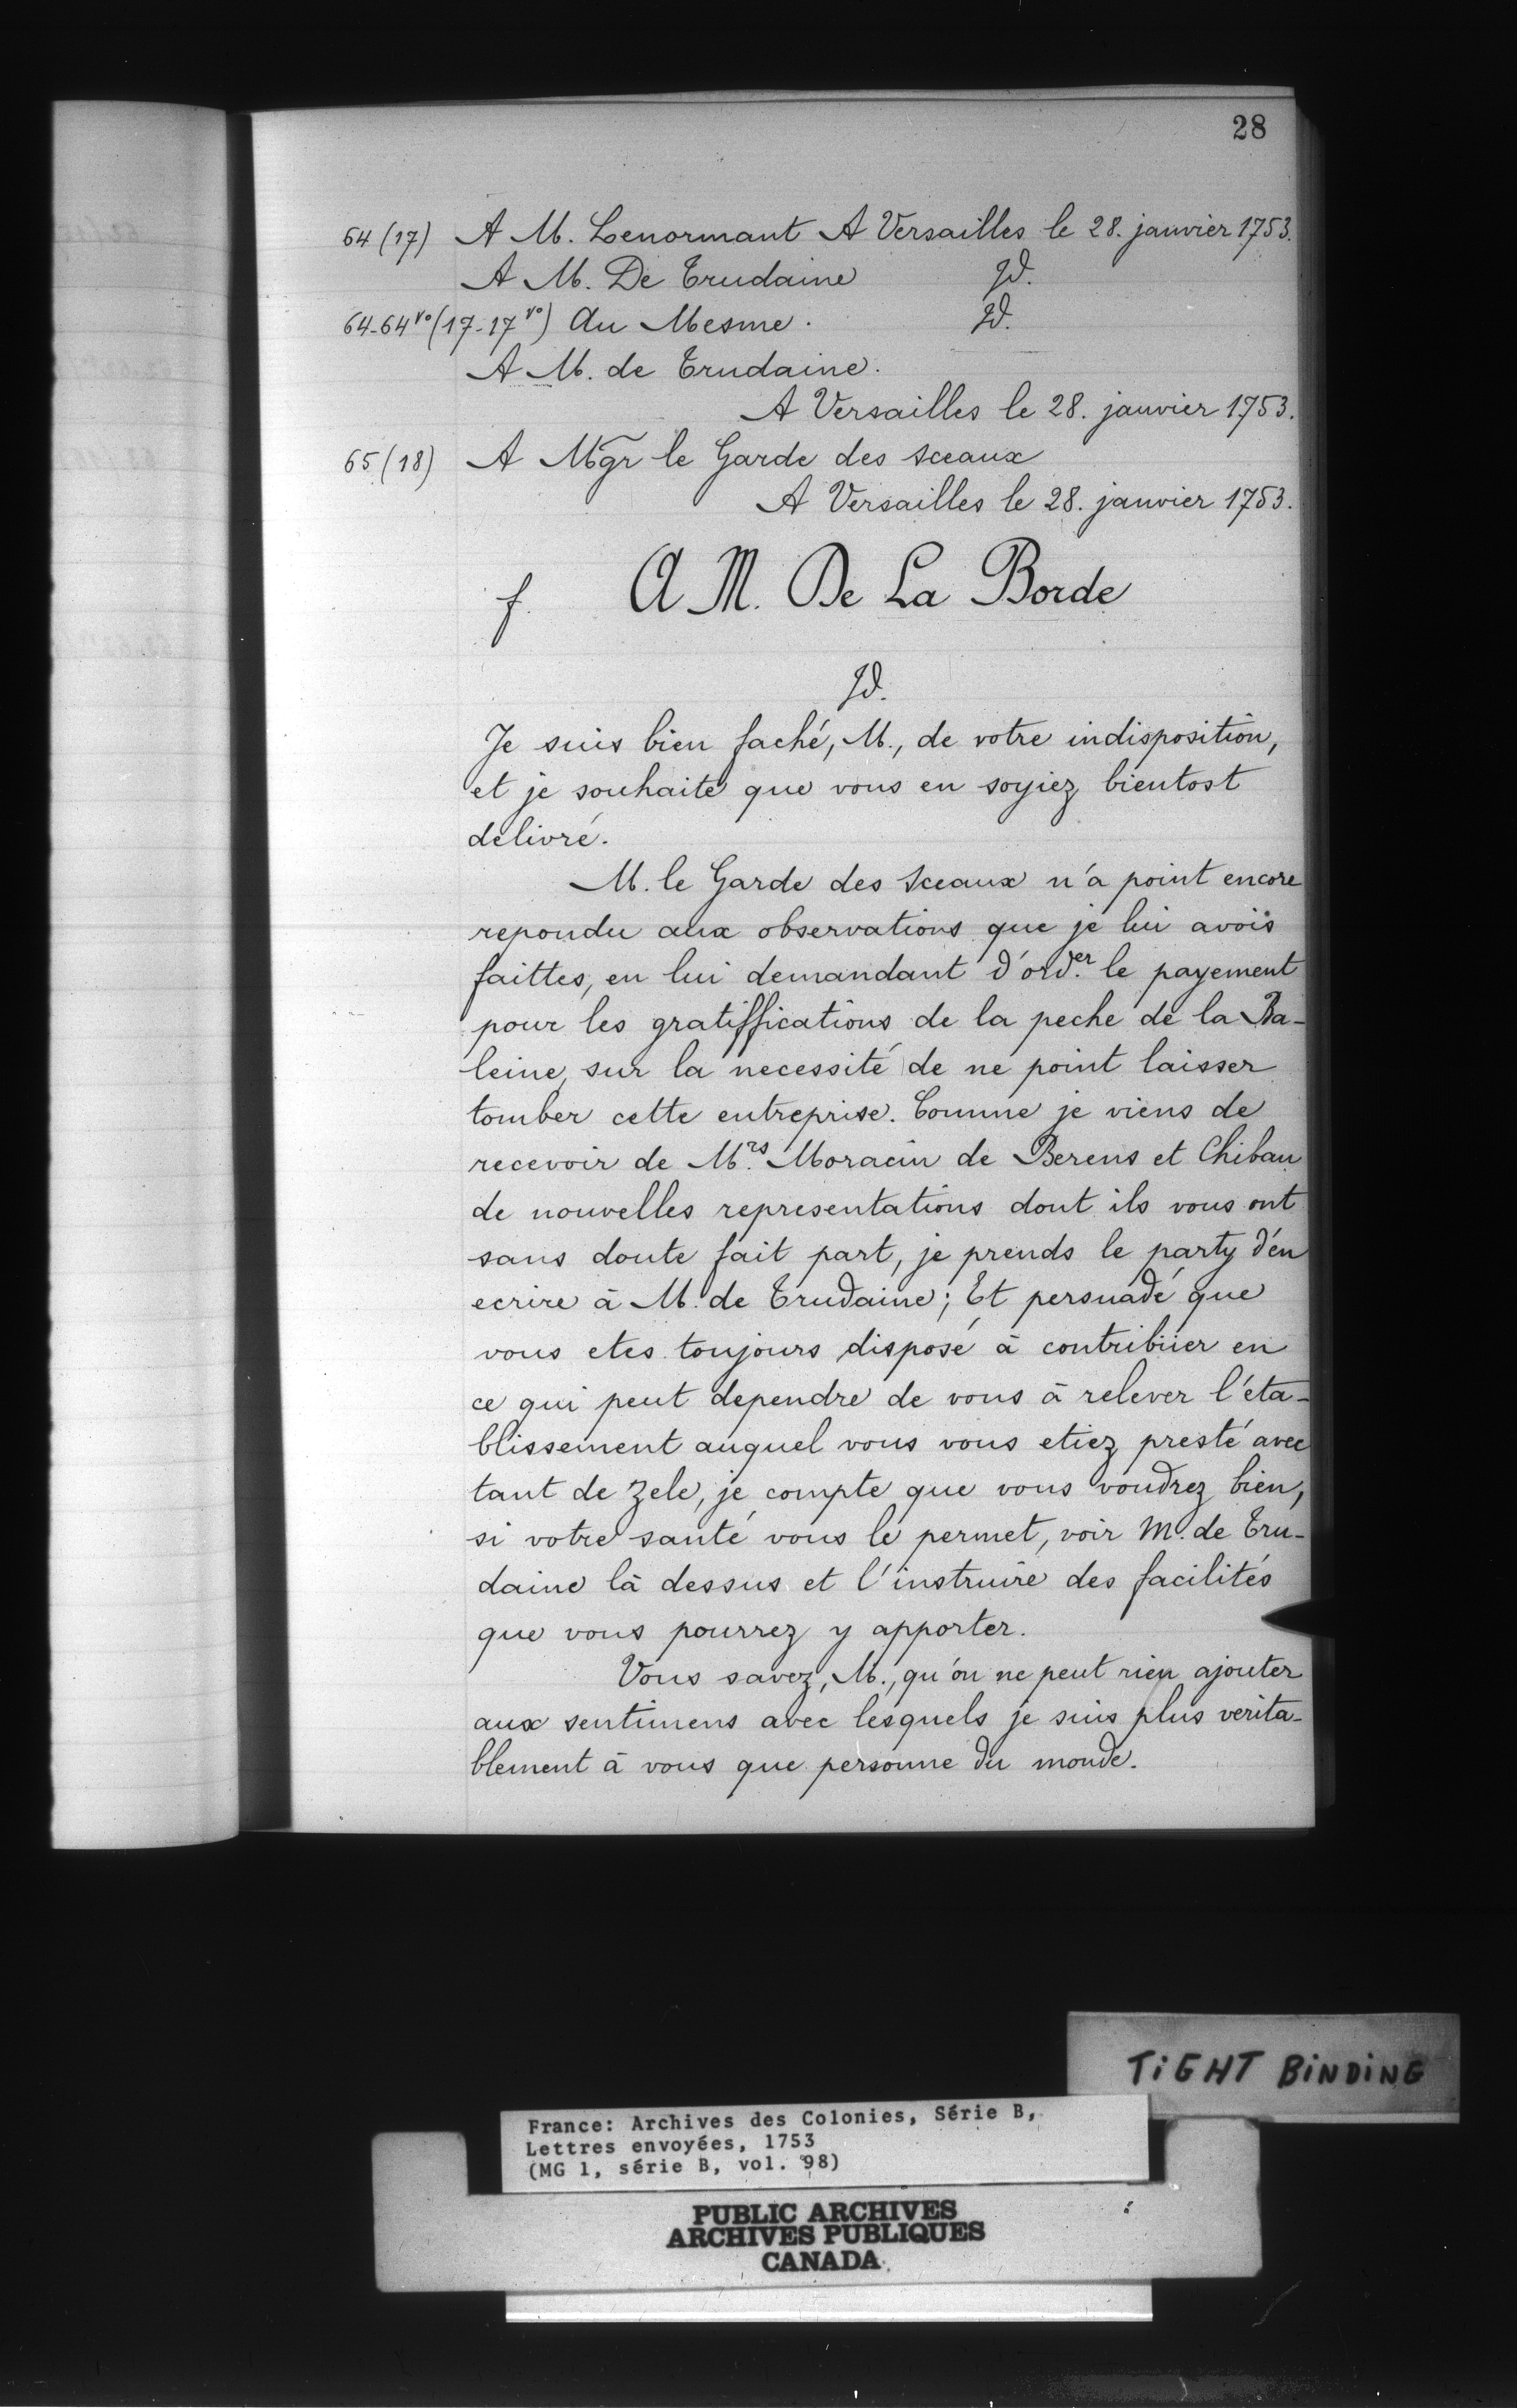 28
64 (17) A M. Lenormant A Versailles le 28. janvier 1753.
A M. De Trudaine Id.
64-64vo (17-17vo) Au Mesme. Id.
A M. de Trudaine.
A Versailles le 28. janvier 1753.
65 (18) A Mgr le Garde des Sceaux
A Versailles le 28. janvier 1753.
f. A M. De La Borde
Id.
Je suis bien faché, M., de votre indisposition,
et je souhaite que vous en soyiez bientost
delivré.
M. le Garde des Sceaux n'a point encore
repondu aux observations que je lui avois
faittes, en lui demandant d'ord.er le payement
pour les gratiffications de la peche de la Ba-
leine, sur la necessité de ne point laisser
tomber cette entreprise. Comme je viens de
recevoir de M.rs Moracin de Berens et Chibau
de nouvelles representations dont ils vous ont
sans doute fait part, je prends le party d'en
ecrire à M. de Trudaine; Et persuadé que
vous etes toujours disposé à contribüer en
ce qui peut dependre de vous à relever l'éta-
blissement auquel vous vous etiez presté avec
tant de zele, je compte que vous voudrez bien,
si votre santé vous le permet, voir M. de Tru-
daine là dessus et l'instruire des facilités
que vous pourrez y apporter.
Vous savez, M., qu'on ne peut rien ajouter
aux sentimens avec lesquels je suis plus verita-
blement à vous que personne du monde.
TiGHT BiNDiNG
France: Archives des Colonies, Série B,
Lettres envoyées, 1753
(MG 1, série B, vol. 98)
PUBLIC ARCHIVES
ARCHIVES PUBLIQUES
CANADA